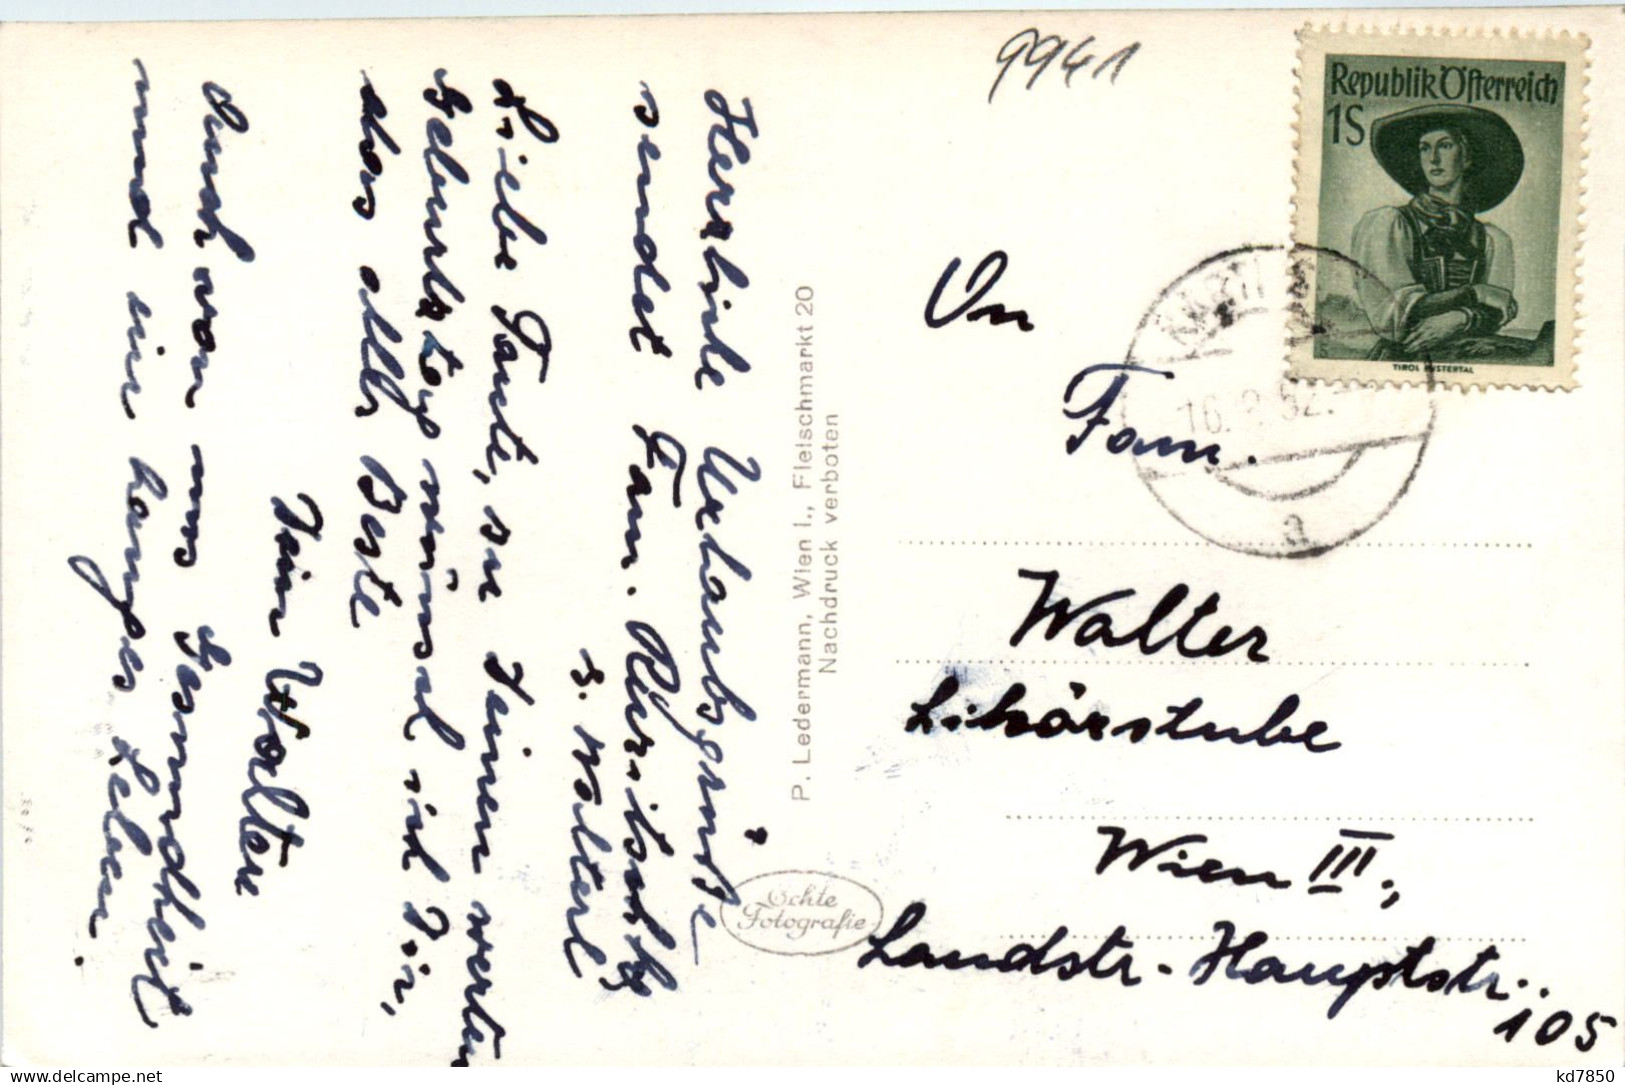 9941
Republik Österreich
1S
TIROL PUSTERTAL
16. 8. 52.
a
Herzliche Urlaubsgrüße
sendet Fam.
u. Walterl
Liebe Tante, zu Deinem werten
Geburtstag wünsch ich Dir,
das aller Beste
Dein Walterl
Auch von uns Gesundheit
und ein langes Leben.
P. Ledermann, Wien I., Fleischmarkt 20
Nachdruck verboten
Echte
Fotografie
An
Fam.
Walter
Likörstube
Wien III.,
Landstr.-Hauptstr..
105
kd7850